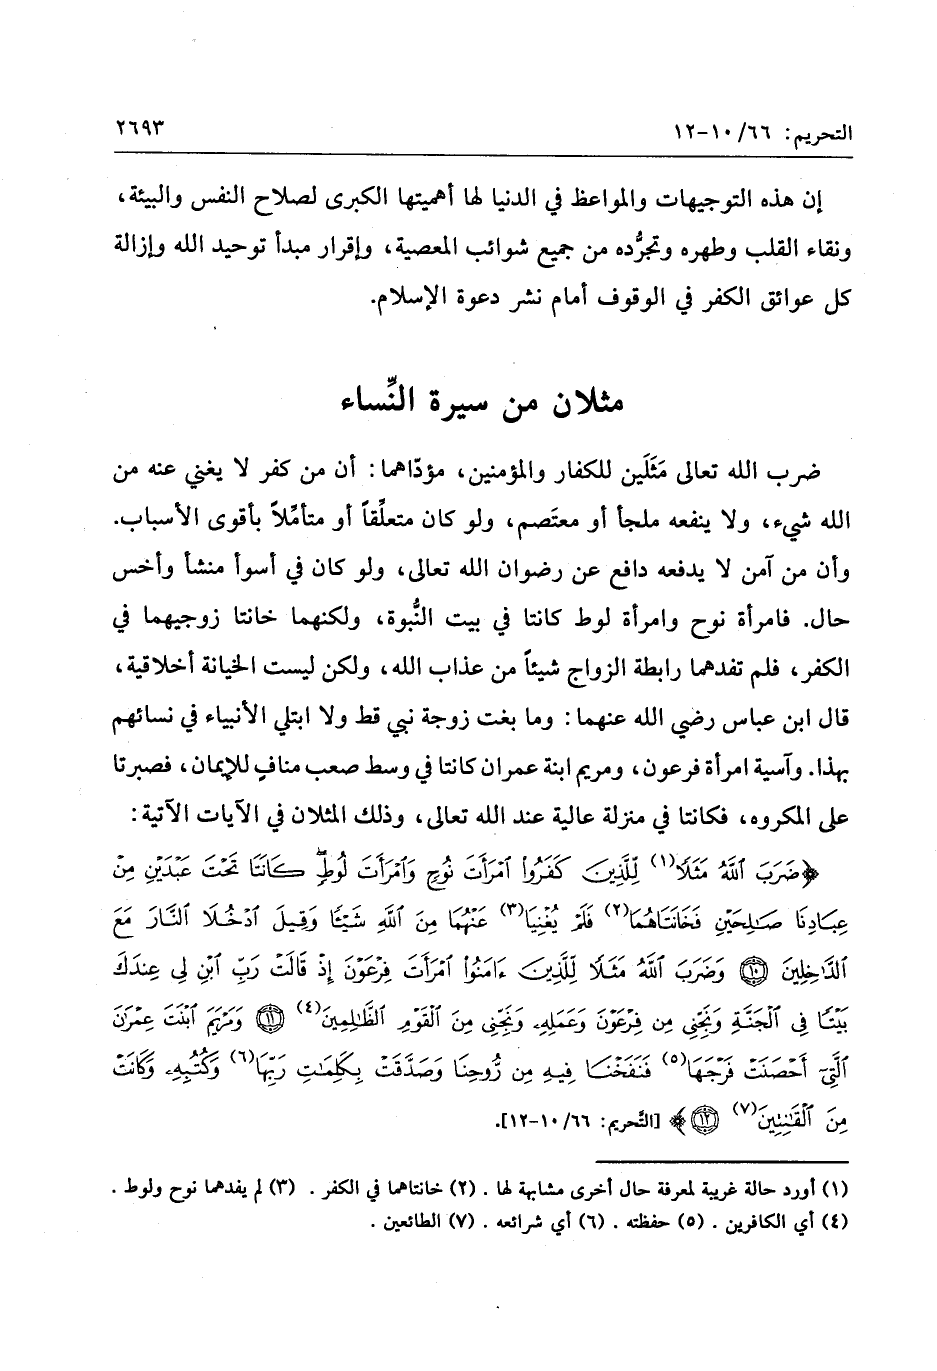 التحريم: ٦٦/ ١٠-١٢ ٢٦٩٣
إن هذه التوجيهات والمواعظ في الدنيا لها أهميتها الكبرى لصلاح النفس والبيئة،
ونقاء القلب وطهره وتجرُّده من جميع شوائب المعصية، وإقرار مبدأ توحيد الله وإزالة
كل عوائق الكفر في الوقوف أمام نشر دعوة الإسلام.
مثلان من سيرة النِّساء
ضرب الله تعالى مَثَلَين للكفار والمؤمنين، مؤدّاهما: أن من كفر لا يغني عنه من
الله شيء، ولا ينفعه ملجأ أو معتَصم، ولو كان متعلِّقاً أو متأمِّلاً بأقوى الأسباب.
وأن من آمن لا يدفعه دافع عن رضوان الله تعالى، ولو كان في أسوأ منشأ وأخس
حال. فامرأة نوح وامرأة لوط كانتا في بيت النُّبوة، ولكنهما خانتا زوجيهما في
الكفر، فلم تفدهما رابطة الزواج شيئاً من عذاب الله، ولكن ليست الخيانة أخلاقية،
قال ابن عباس رضي الله عنهما: وما بغت زوجة نبي قط ولا ابتلي الأنبياء في نسائهم
بهذا. وآسية امرأة فرعون، ومريم ابنة عمران كانتا في وسط صعب منافٍ للإيمان، فصبرتا
على المكروه، فكانتا في منزلة عالية عند الله تعالى، وذلك المثلان في الآيات الآتية:
﴿ضَرَبَ ٱللَّهُ مَثَلًا(١) لِّلَّذِينَ كَفَرُواْ ٱمۡرَأَتَ نُوحٖ وَٱمۡرَأَتَ لُوطٖۖ كَانَتَا تَحۡتَ عَبۡدَيۡنِ مِنۡ
عِبَادِنَا صَٰلِحَيۡنِ فَخَانَتَاهُمَا(٢) فَلَمۡ يُغۡنِيَا(٣) عَنۡهُمَا مِنَ ٱللَّهِ شَيۡـٔٗا وَقِيلَ ٱدۡخُلَا ٱلنَّارَ مَعَ
ٱلدَّٰخِلِينَ ١٠ وَضَرَبَ ٱللَّهُ مَثَلٗا لِّلَّذِينَ ءَامَنُواْ ٱمۡرَأَتَ فِرۡعَوۡنَ إِذۡ قَالَتۡ رَبِّ ٱبۡنِ لِي عِندَكَ
بَيۡتٗا فِي ٱلۡجَنَّةِ وَنَجِّنِي مِن فِرۡعَوۡنَ وَعَمَلِهِۦ وَنَجِّنِي مِنَ ٱلۡقَوۡمِ ٱلظَّٰلِمِينَ(٤) ١١ وَمَرۡيَمَ ٱبۡنَتَ عِمۡرَٰنَ
ٱلَّتِيٓ أَحۡصَنَتۡ فَرۡجَهَا(٥) فَنَفَخۡنَا فِيهِ مِن رُّوحِنَا وَصَدَّقَتۡ بِكَلِمَٰتِ رَبِّهَا(٦) وَكُتُبِهِۦ وَكَانَتۡ
مِنَ ٱلۡقَٰنِتِينَ(٧) ١٢﴾ [التَّحريم: ٦٦/ ١٠-١٢].
(١) أورد حالة غريبة لمعرفة حال أخرى مشابهة لها. (٢) خانتاهما في الكفر. (٣) لم يفدهما نوح ولوط.
(٤) أي الكافرين. (٥) حفظته. (٦) أي شرائعه. (٧) الطائعين.